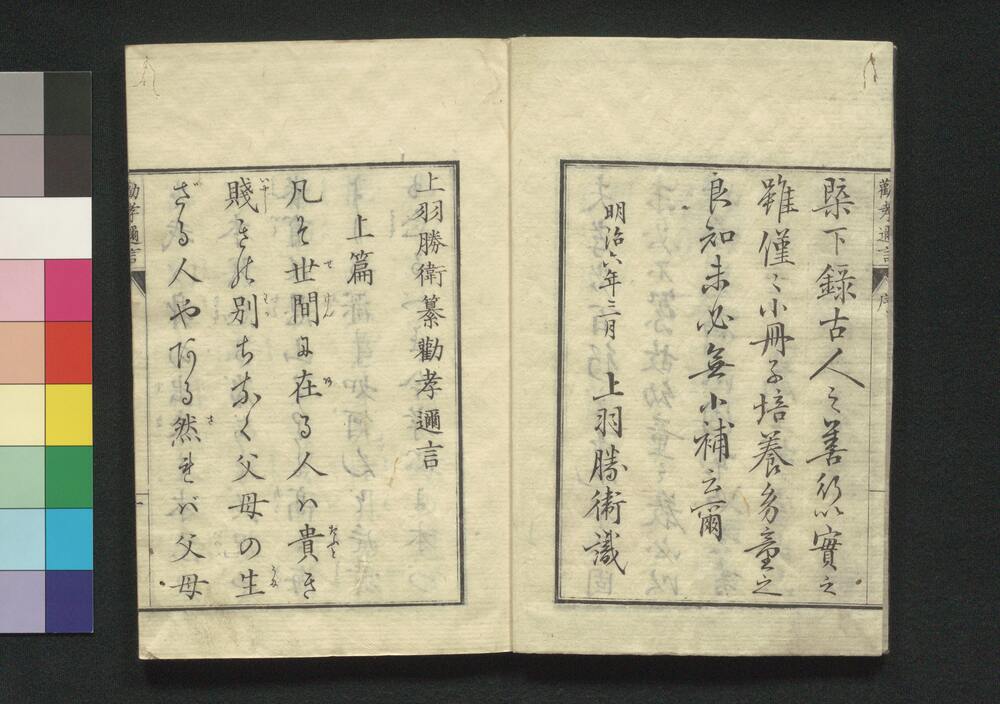 勸孝邇言 序
槩下錄古人之善行以實之
雖僅〻小冊子培養童之
良知未必無小補云爾
明治六年三月 上羽勝衛識
上羽勝衛纂勸孝邇言
上篇
凡そ世間に在る人ハ貴き
賤きの別ちなく父母の生
ざる人やある然れバ父母
勸孝邇言
一